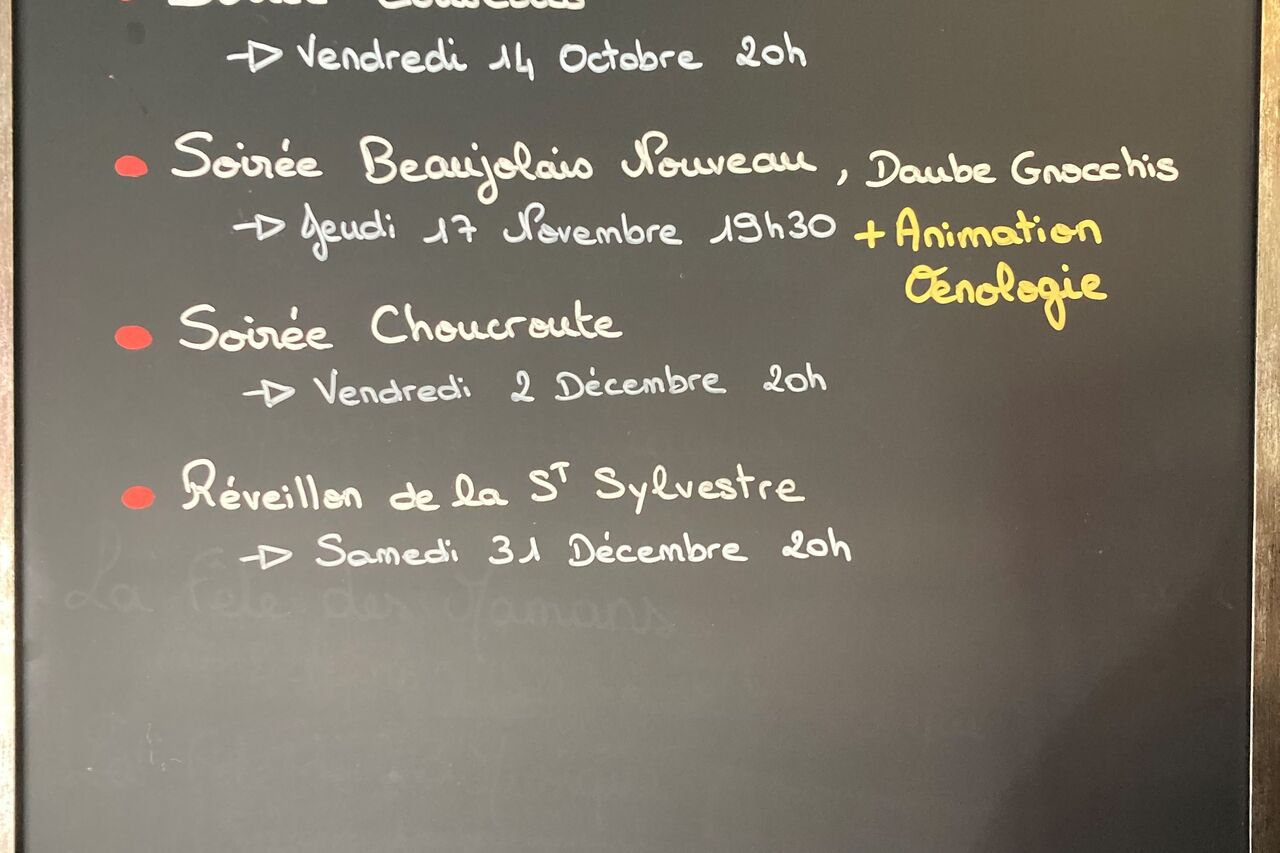 Soirée Couscous
→ Vendredi 14 Octobre 20h
Soirée Beaujolais Nouveau, Daube Gnocchis
→ Jeudi 17 Novembre 19h30 + Animation
Œnologie
Soirée Choucroute
→ Vendredi 2 Décembre 20h
Réveillon de la ST Sylvestre
→ Samedi 31 Décembre 20h
La Fête des Mamans